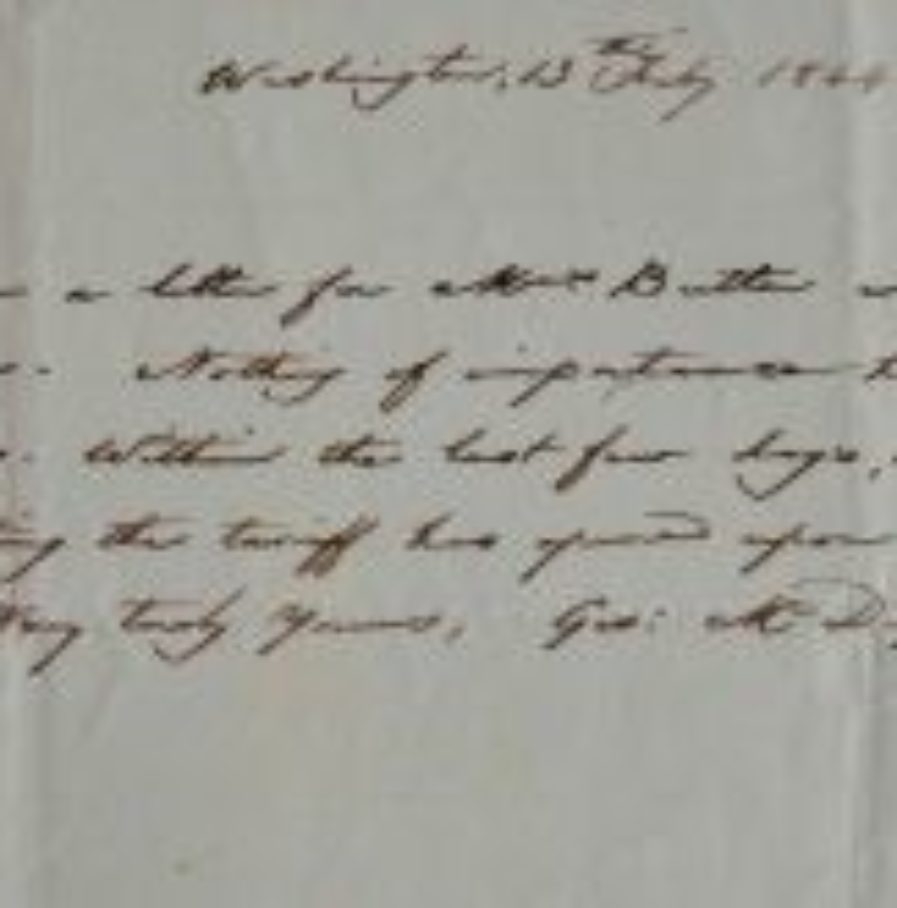 Washington, 13th July 1844
a letter for Mrs Butler
Nothing of importance
Within the last few days,
the tariff has opened upon
Very truly yours, Geo: McD